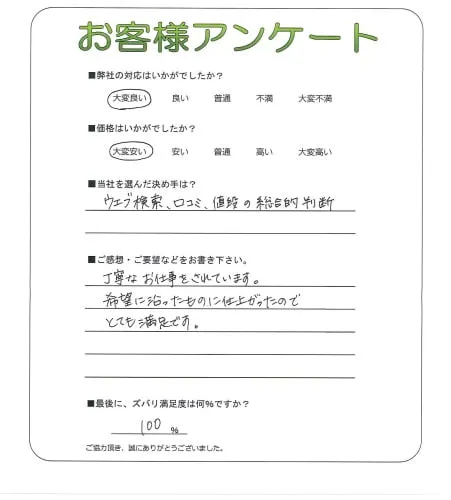 お客様アンケート
■弊社の対応はいかがでしたか？
大変良い 良い 普通 不満 大変不満
■価格はいかがでしたか？
大変安い 安い 普通 高い 大変高い
■当社を選んだ決め手は？
ウェブ検索、口コミ、値段の総合的判断
■ご感想・ご要望などをお書き下さい。
丁寧なお仕事をされています。
希望に沿ったものに仕上がったので
とても満足です。
■最後に、ズバリ満足度は何％ですか？
100 %
ご協力頂き、誠にありがとうございました。